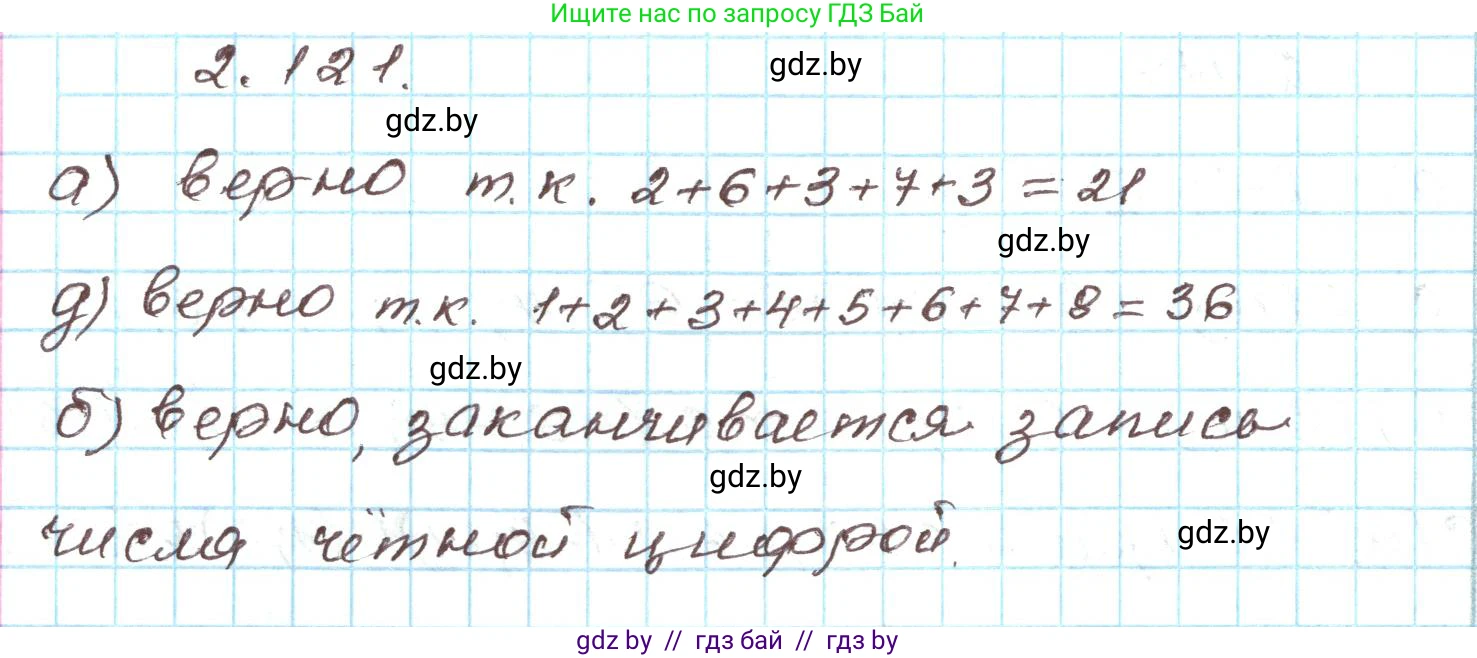 Ищите нас по запросу ГДЗ Бай
2.121.
gdz.by
gdz.by
а) верно т.к. 2+6+3+7+3=21
gdz.by
д) верно т.к. 1+2+3+4+5+6+7+8=36
gdz.by
б) верно, заканчивается запись
gdz.by
числа чётной цифрой.
gdz.by
gdz by // гдз бай // гдз by